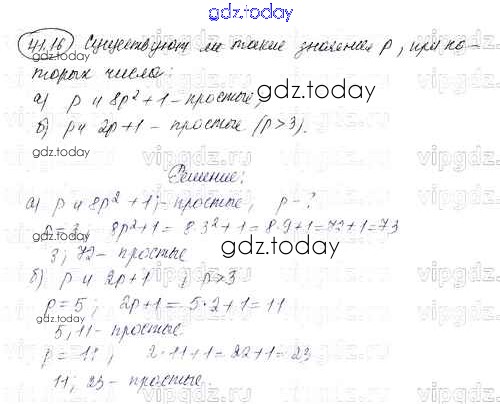 gdz.today
41.16 Существуют ли такие значения p, при ко-
торых числа:
gdz.today
а) p и 8p² + 1 – простые;
б) p и 2p + 1 – простые (p > 3).
gdz.today
vipgdz.ru
Решение:
а) p и 8p² + 1; – простые, p - ?
p = 3, 8p² + 1 = 8·3² + 1 = 8·9 + 1 = 72 + 1 = 73
gdz.today
3; 72 – простые
б) p и 2p + 1, p > 3
p = 5; 2p + 1 = 5·2 + 1 = 11
gdz.today
5, 11 – простые
p = 11; 2·11 + 1 = 22 + 1 = 23
gdz.today
11; 23 – простые.